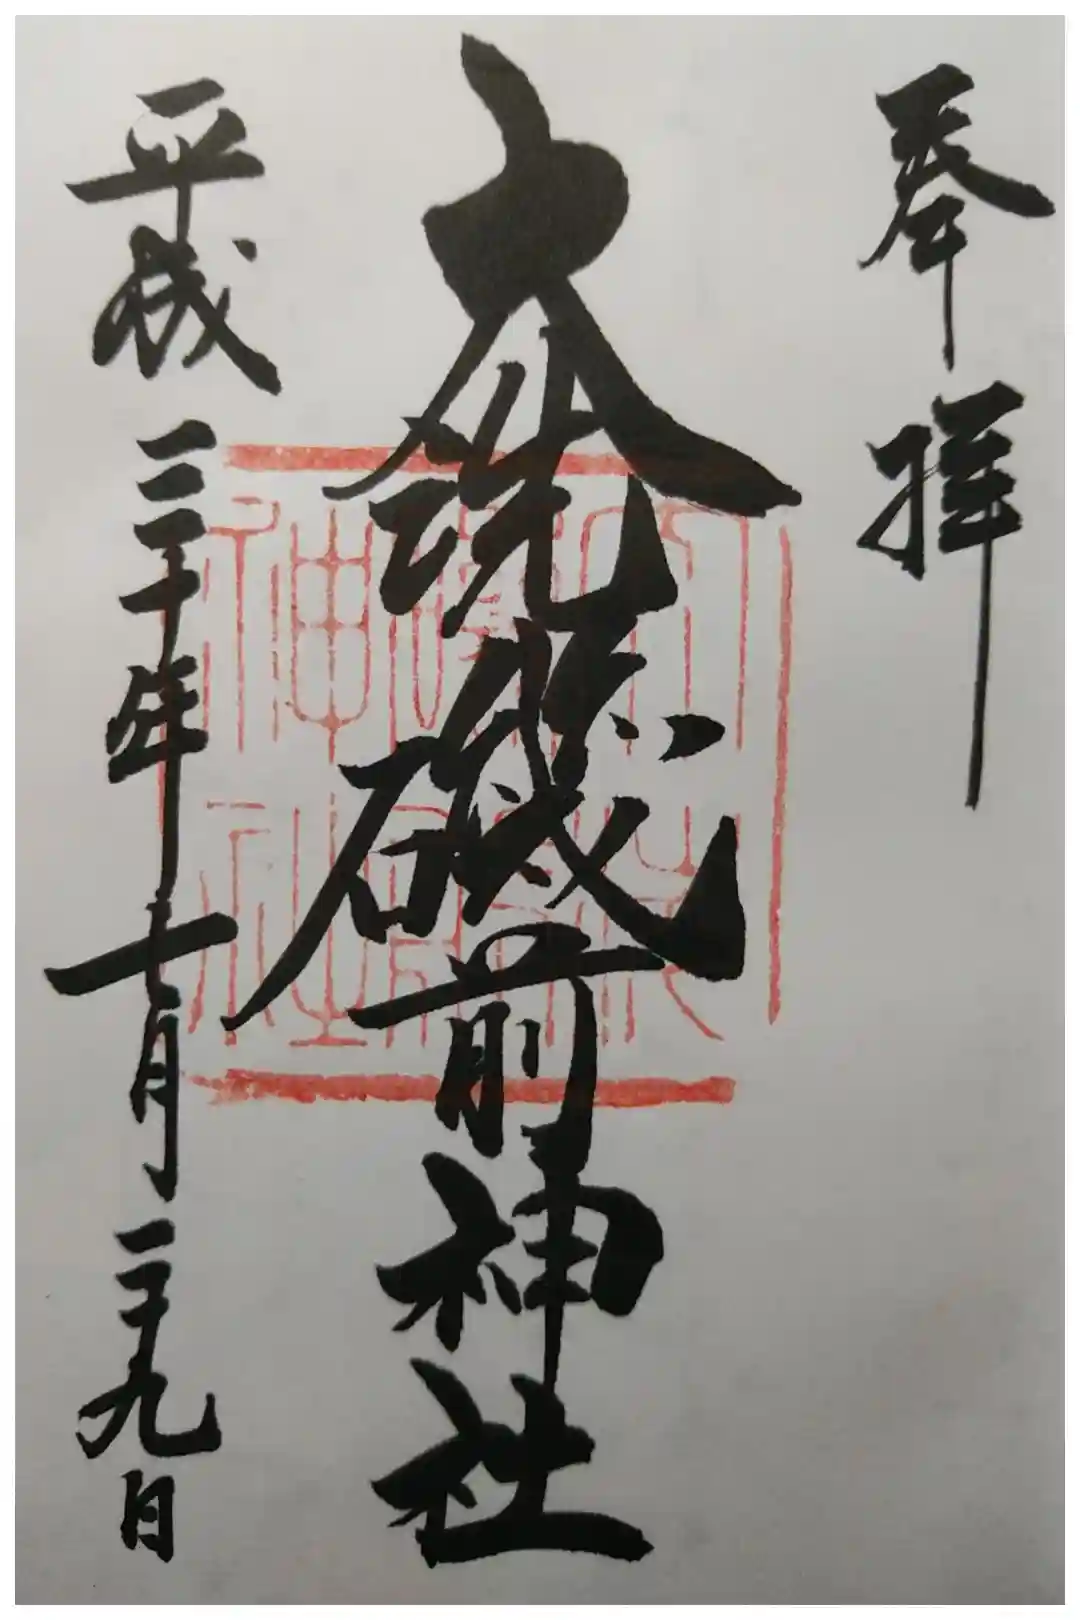 奉拝
大洗磯前神社
大洗
磯前
神社
平成三十年七月二十九日